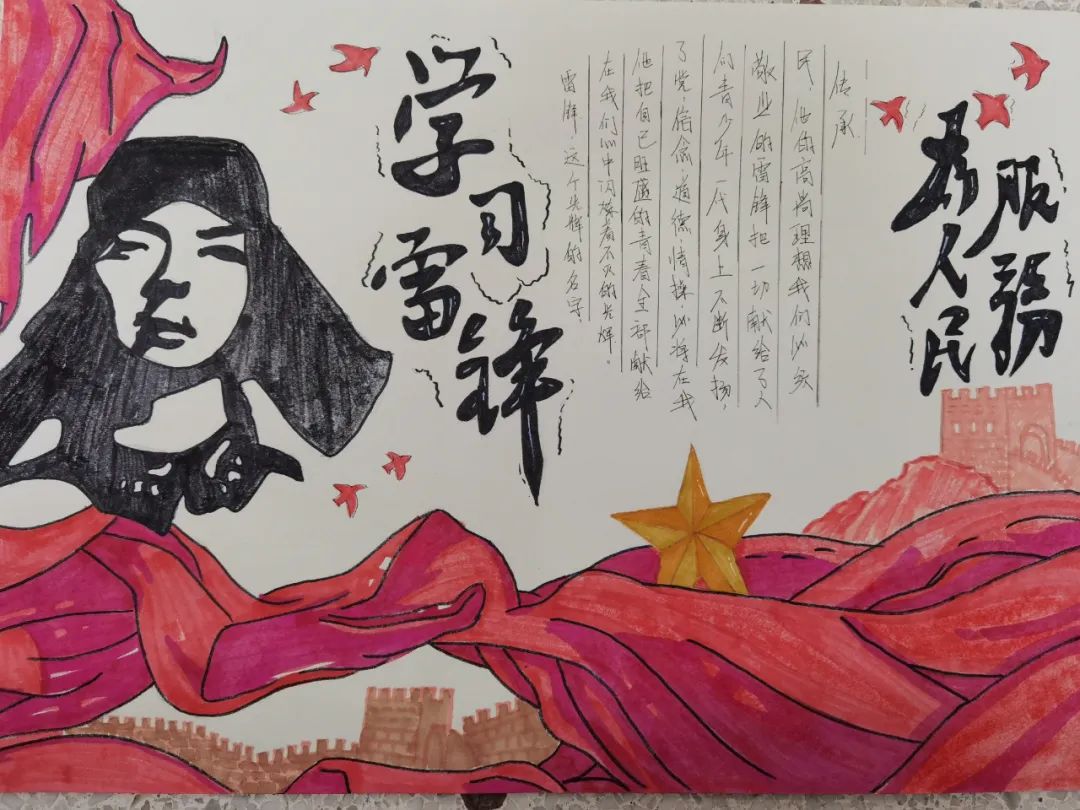 学习
雷锋
雷锋,这个光辉的名字,
在我们心中闪烁着不灭的光辉.
他把自己旺盛的青春全部献给
了党.信念.道德.情操必将在我
们青少年一代身上不断发扬,
敬业的雷锋把一切献给了人
民,他的高尚理想我们必须
传承
为人民
服務